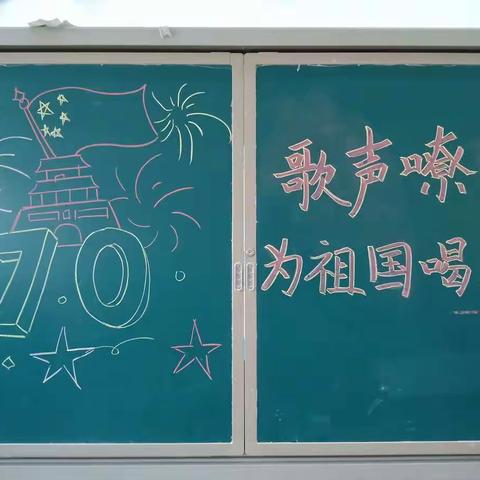 70
歌声嘹
为祖国喝